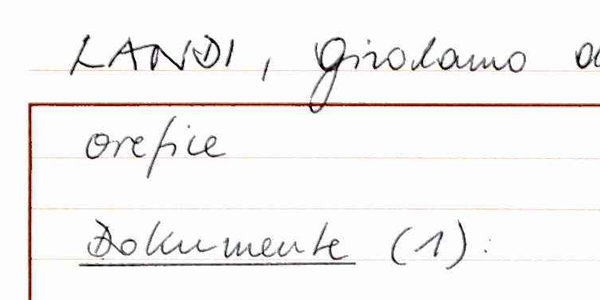 LANDI, Girolamo
orefice
Dokumente (1):